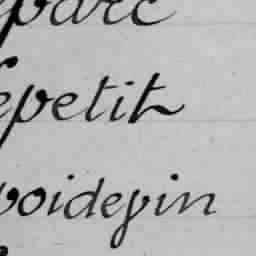 parc
epetit
voidepin